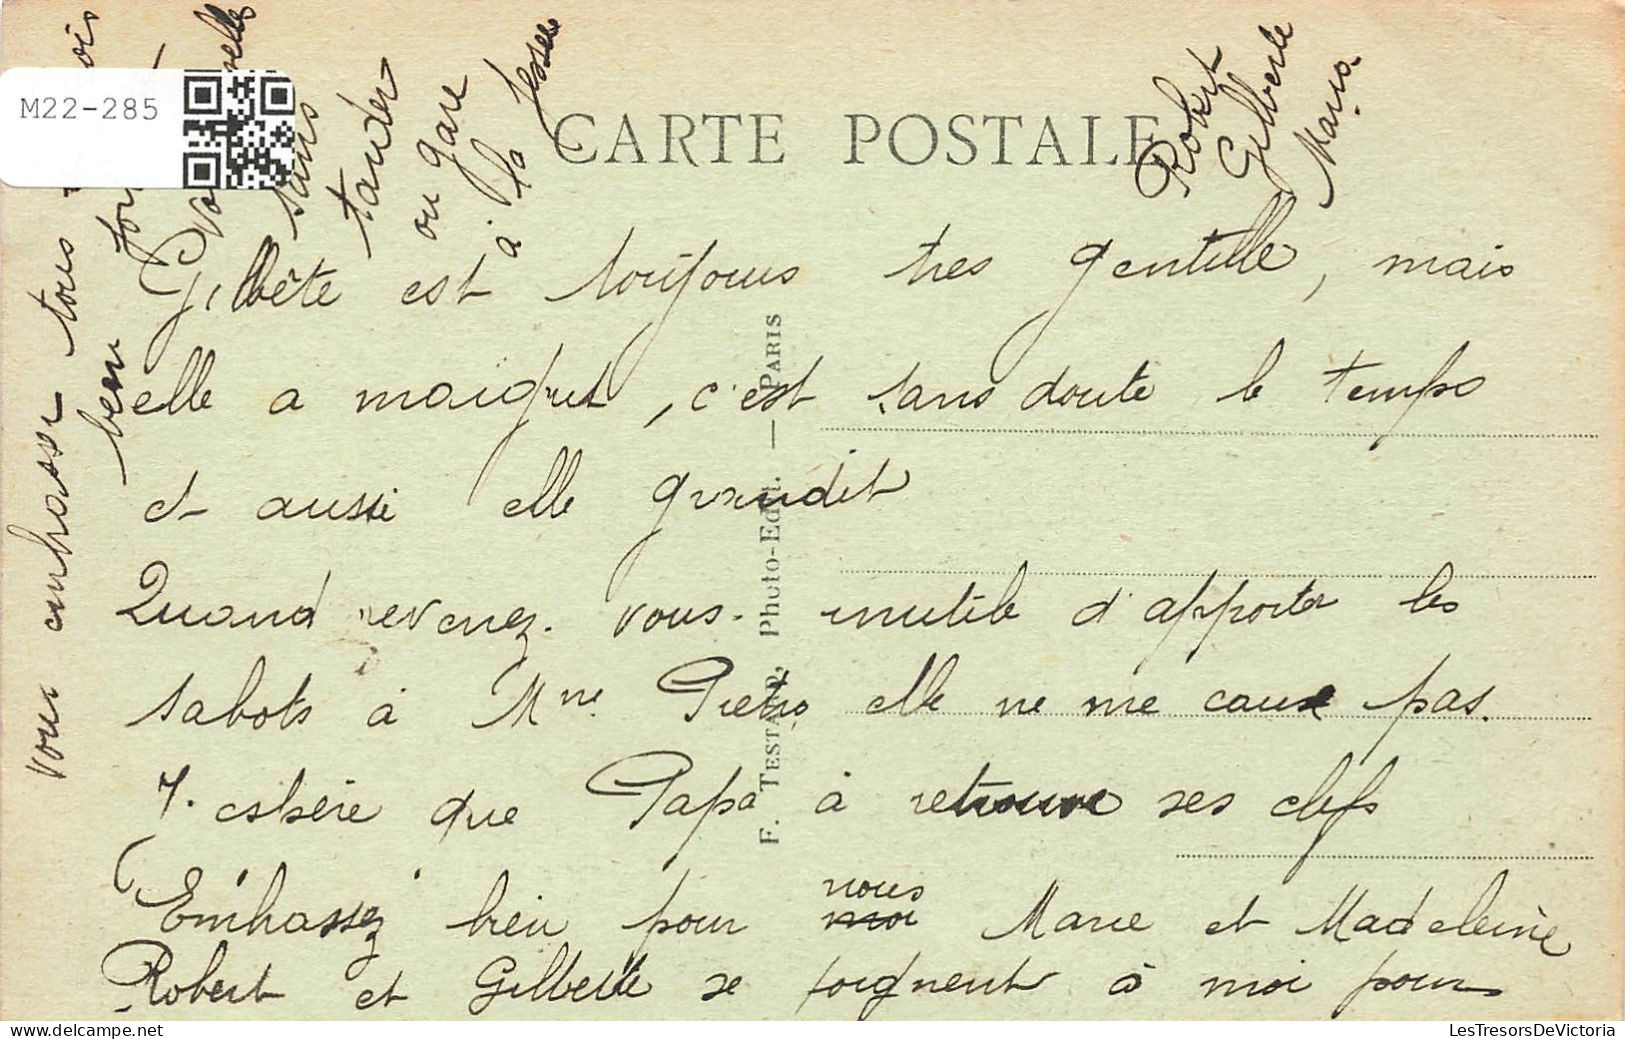 M22-285
CARTE POSTALE
Gilbète est toujours tres gentille, mais
elle a maigrit, c'est sans doute le temps
et aussi elle grandit
Quand revenez-vous. inutile d'apporter les
sabots à Mme Pietro elle ne me cause pas.
J'espère que Papa à retrouve ses clefs
Embrassez bien pour moi nous Marie et Madeleine
Robert et Gilberte se joignent à moi pour
vous embrasser tous
bien
sans
tarder
ou gare
à la fessée
Robert
Gilberte
Maria
F. TESTARD, Photo-Edit. — PARIS
LesTresorsDeVictoria.com
LesTresorsDeVictoria